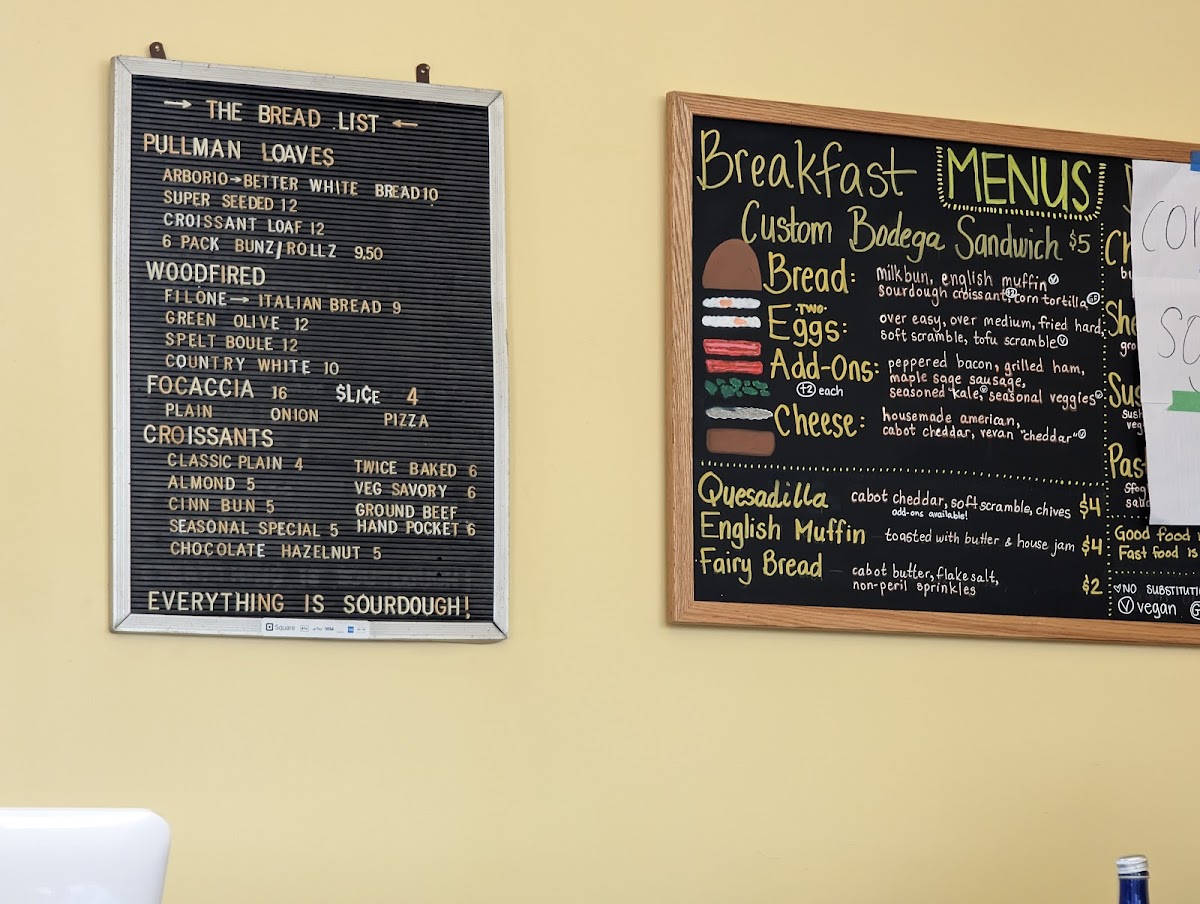 → THE BREAD LIST ←
PULLMAN LOAVES
ARBORIO→BETTER WHITE BREAD 10
SUPER SEEDED 12
CROISSANT LOAF 12
6 PACK BUNZ/ROLLZ 9.50
WOODFIRED
FILONE→ ITALIAN BREAD 9
GREEN OLIVE 12
SPELT BOULE 12
COUNTRY WHITE 10
FOCACCIA 16 $LI¢E 4
PLAIN ONION PIZZA
CROISSANTS
CLASSIC PLAIN 4
ALMOND 5
CINN BUN 5
SEASONAL SPECIAL 5
CHOCOLATE HAZELNUT 5
TWICE BAKED 6
VEG SAVORY 6
GROUND BEEF
HAND POCKET 6
EVERYTHING IS SOURDOUGH!
Square
Breakfast MENUS
Custom Bodega Sandwich $5
Bread: milkbun, english muffin Ⓥ
sourdough croissant, corn tortilla
TWO
Eggs: over easy, over medium, fried hard,
soft scramble, tofu scramble Ⓥ
Add-Ons: peppered bacon, grilled ham,
+2 each maple sage sausage,
seasoned kale, Ⓥ seasonal veggies Ⓥ
Cheese: housemade american,
cabot cheddar, vevan "cheddar" Ⓥ
Quesadilla cabot cheddar, soft scramble, chives $4
add-ons available!
English Muffin toasted with butter & house jam $4
Fairy Bread cabot butter, flake salt, $2
non-peril sprinkles
Good food
Fast food is
NO SUBSTITUTIO
Ⓥ vegan